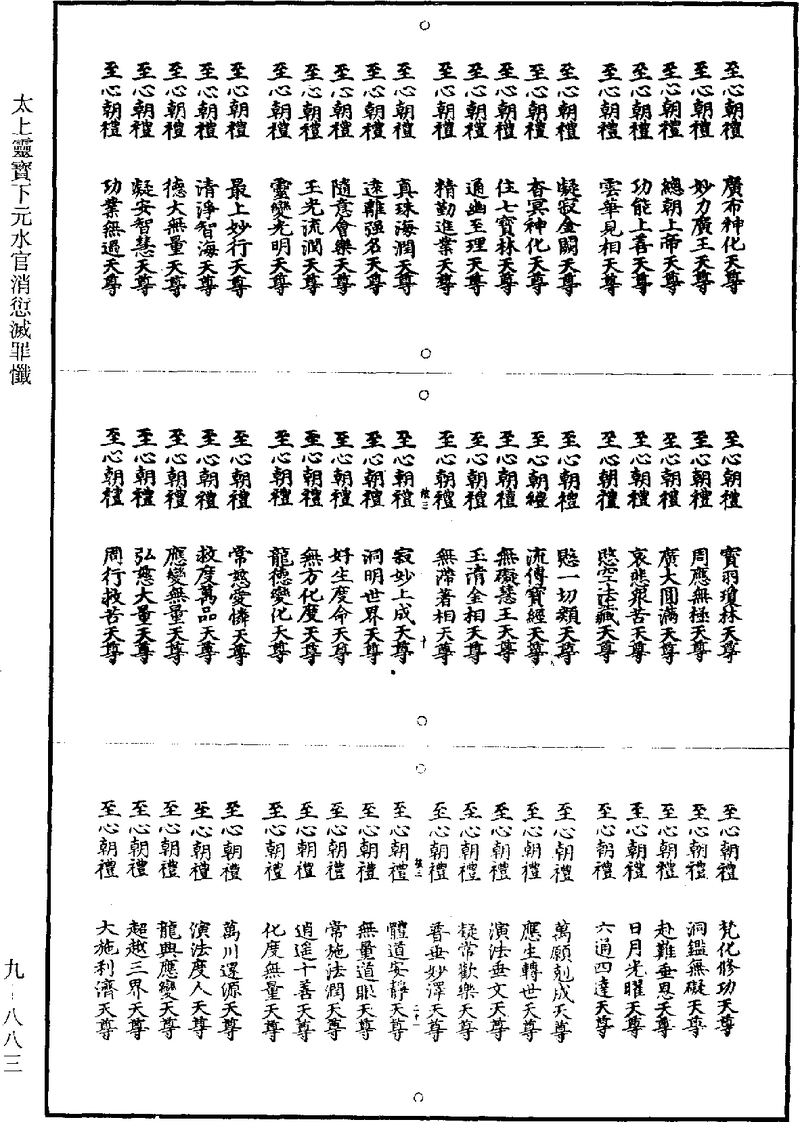 太上靈寶下元水官消愆滅罪懺
至心朝禮　廣布神化天尊
至心朝禮　妙力廣王天尊
至心朝禮　總朝上帝天尊
至心朝禮　功能上喜天尊
至心朝禮　雲華見相天尊
至心朝禮　凝寂金闕天尊
至心朝禮　杳冥神化天尊
至心朝禮　住七寶林天尊
至心朝禮　通幽至理天尊
至心朝禮　精勤進業天尊
至心朝禮　真珠海潤天尊
至心朝禮　遠離強名天尊
至心朝禮　隨意會樂天尊
至心朝禮　玉光流潤天尊
至心朝禮　靈變光明天尊
至心朝禮　最上妙行天尊
至心朝禮　清淨智海天尊
至心朝禮　德大無量天尊
至心朝禮　凝安智慧天尊
至心朝禮　功業無過天尊
至心朝禮　寶羽瓊林天尊
至心朝禮　周應無極天尊
至心朝禮　廣大圓滿天尊
至心朝禮　哀悲眾苦天尊
至心朝禮　愍空法藏天尊
至心朝禮　愍一切類天尊
至心朝禮　流傳寶經天尊
至心朝禮　無礙慧王天尊
至心朝禮　玉清金相天尊
至心朝禮　無滯著相天尊
至心朝禮　寂妙上成天尊
至心朝禮　洞明世界天尊
至心朝禮　好生度命天尊
至心朝禮　無方化度天尊
至心朝禮　龍德變化天尊
至心朝禮　常慈愛憐天尊
至心朝禮　救度萬品天尊
至心朝禮　應變無量天尊
至心朝禮　弘慈大量天尊
至心朝禮　周行救苦天尊
至心朝禮　梵化修功天尊
至心朝禮　洞鑑無礙天尊
至心朝禮　赴難垂恩天尊
至心朝禮　日月光曜天尊
至心朝禮　六通四達天尊
至心朝禮　萬願剋成天尊
至心朝禮　應生轉世天尊
至心朝禮　演法垂文天尊
至心朝禮　凝常歡樂天尊
至心朝禮　普垂妙澤天尊
至心朝禮　體道安靜天尊
至心朝禮　無量道眼天尊
至心朝禮　常施法潤天尊
至心朝禮　逍遙十善天尊
至心朝禮　化度無量天尊
至心朝禮　萬川還源天尊
至心朝禮　演法度人天尊
至心朝禮　龍興應變天尊
至心朝禮　超越三界天尊
至心朝禮　大施利濟天尊
九-八八三